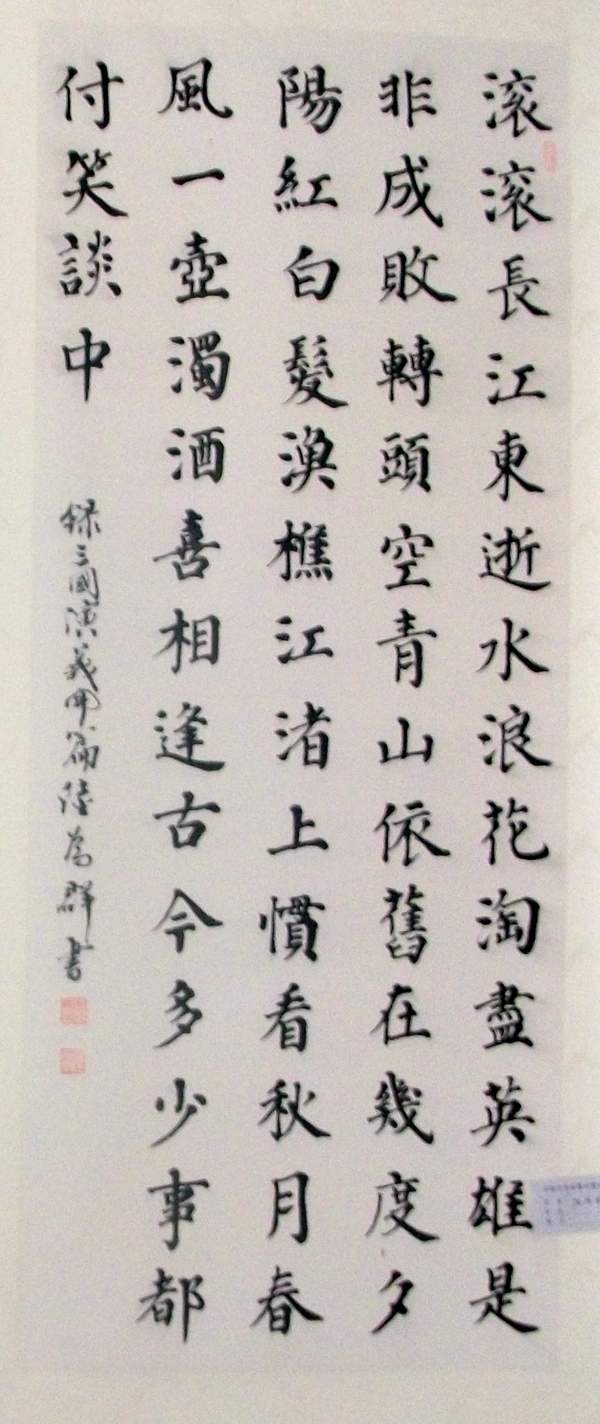 滚滚長江東逝水浪花淘盡英雄是
非成敗轉頭空青山依舊在幾度夕
陽紅白髮漁樵江渚上慣看秋月春
風一壺濁酒喜相逢古今多少事都
付笑談中
録三國演義開篇陸為群書